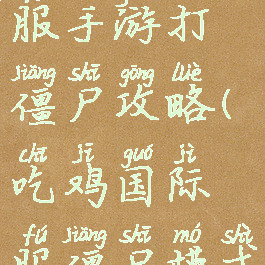 服手游打
jiāng shī gōng lüè
僵尸攻略(
chī jī guó jì
吃鸡国际
fú jiāng shī mó shì
服僵尸模式